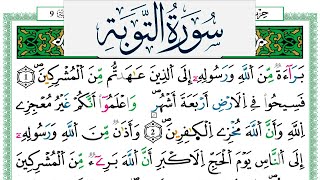 سورة التوبة
بَرَآءَةٌ مِّنَ اللَّهِ وَرَسُولِهِۦٓ إِلَى الَّذِينَ عَـٰهَدتُّم مِّنَ الْمُشْرِكِينَ ١
فَسِيحُوا۟ فِى الْأَرْضِ أَرْبَعَةَ أَشْهُرٍ وَاعْلَمُوٓا۟ أَنَّكُمْ غَيْرُ مُعْجِزِى
اللَّهِ وَأَنَّ اللَّهَ مُخْزِى الْكَـٰفِرِينَ ٢ وَأَذَٰنٌ مِّنَ اللَّهِ وَرَسُولِهِۦٓ
إِلَى النَّاسِ يَوْمَ الْحَجِّ الْأَكْبَرِ أَنَّ اللَّهَ بَرِىٓءٌ مِّنَ الْمُشْرِكِينَ